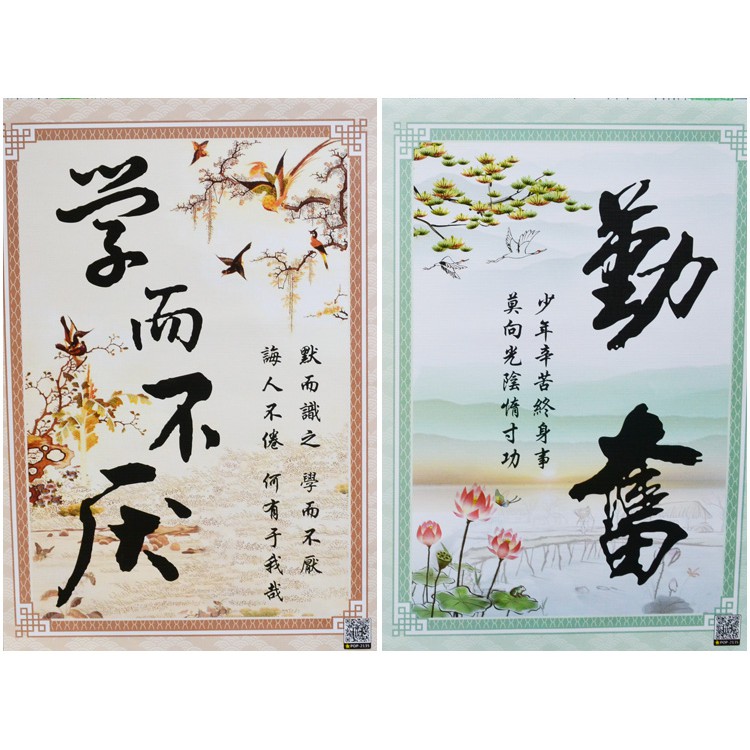 学而不厌
默而識之 學而不厭
誨人不倦 何有于我哉
勤奮
少年辛苦終身事
莫向光陰惰寸功